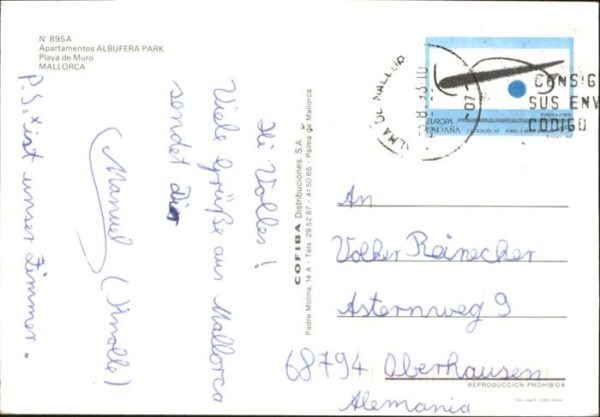 N° 895A
Apartamentos ALBUFERA PARK
Playa de Muro
MALLORCA
Hi Volles!
Viele Grüße aus Mallorca
sendet Dir
Manuel (Knolle)
P.S: X ist unser Zimmer.
COFIBA Distribuciones, S.A.
Padre Molina, 14 A - Tels. 29 52 87 - 41 50 65 - Palma de Mallorca
PALMA DE MALLORCA
CONSIG
SUS ENV
CODIGO
EUROPA
ESPAÑA
An
Volker Reinecher
Asternweg 9
68794 Oberhausen
Alemania
REPRODUCCION PROHIBIDA